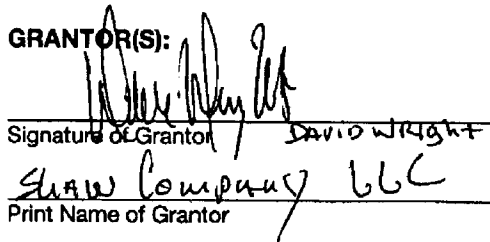 GRANTOR(S):
Signature of Grantor DAVID WRIGHT
SHAW COMPANY LLC
Print Name of Grantor